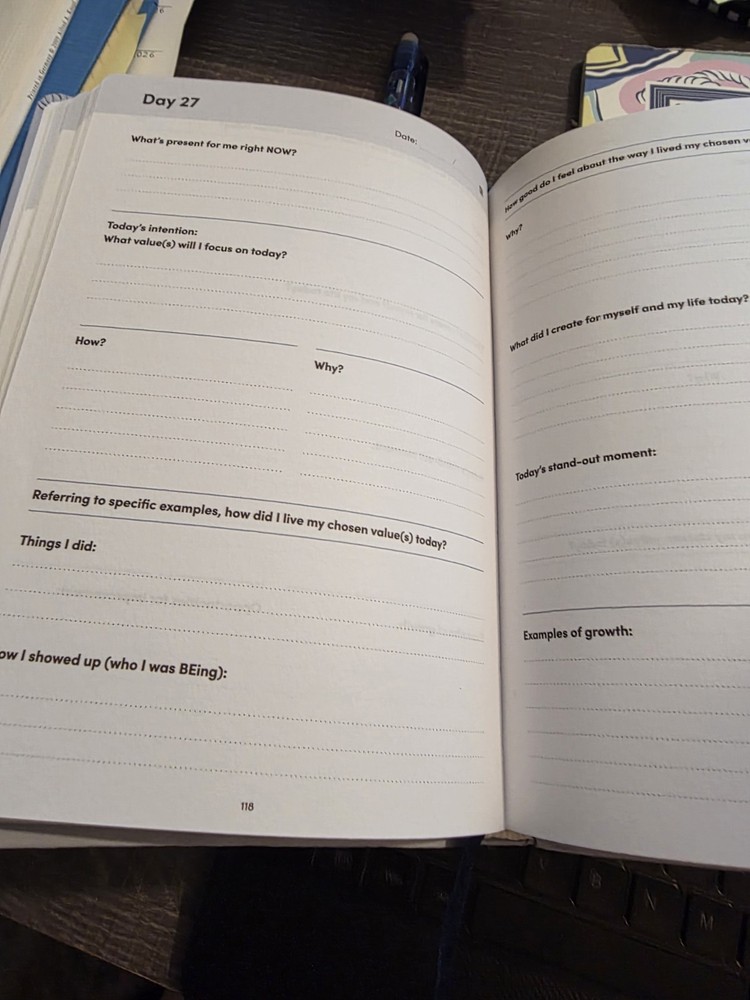 026
Day 27
Date:
What's present for me right NOW?
Today's intention:
What value(s) will I focus on today?
How?
Why?
Referring to specific examples, how did I live my chosen value(s) today?
Things I did:
ow I showed up (who I was BEing):
118
How good do I feel about the way I lived my chosen v
Why?
What did I create for myself and my life today?
Today's stand-out moment:
Examples of growth:
B
N
M